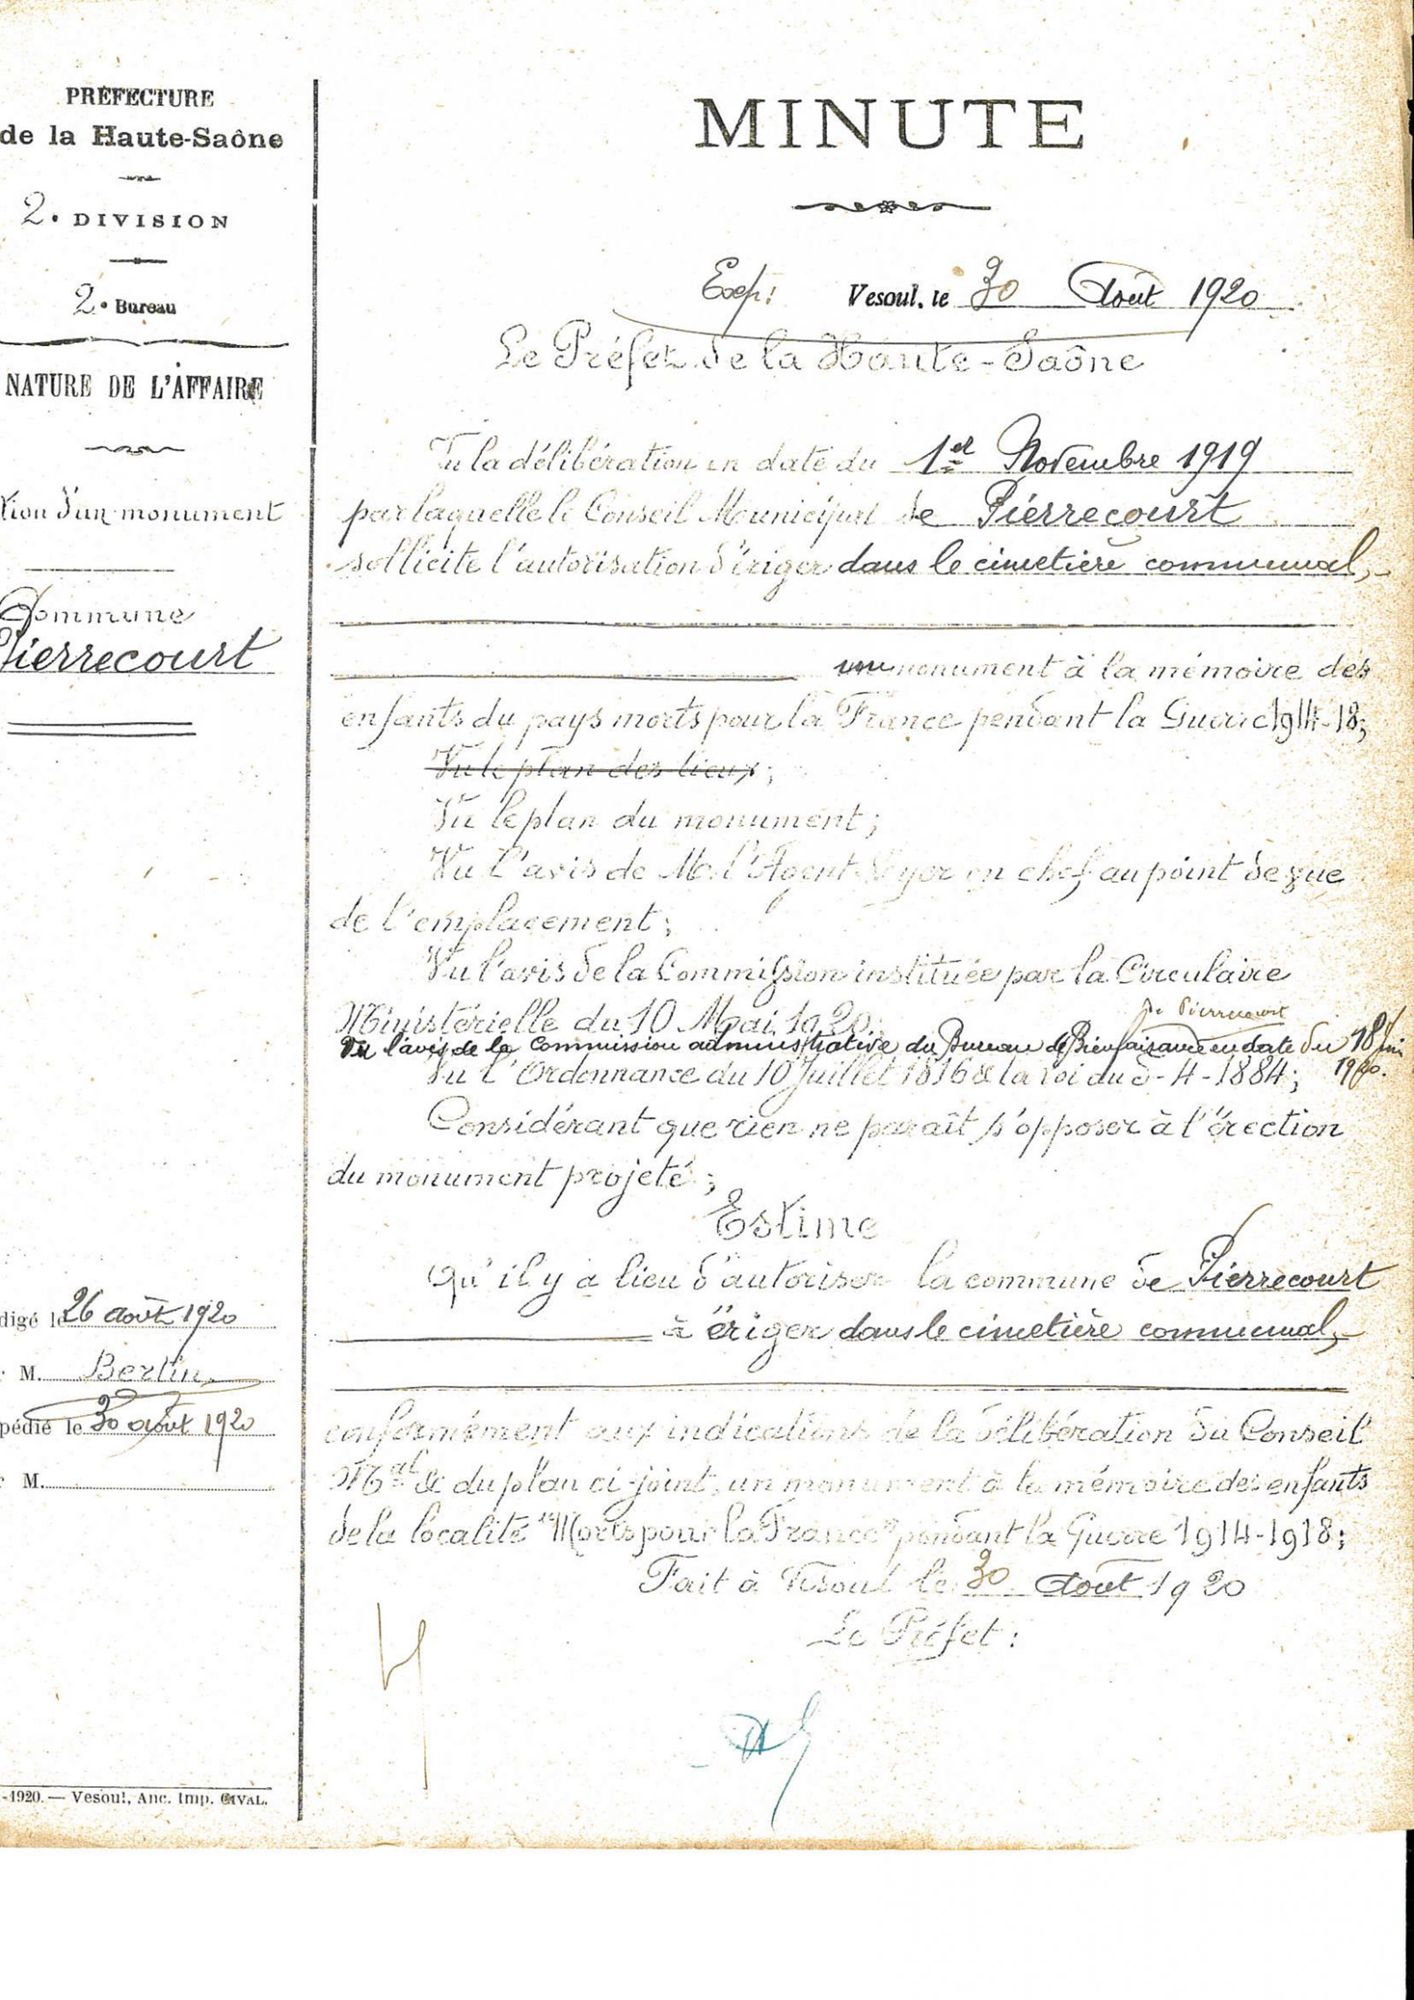 PRÉFECTURE
de la Haute-Saône
2e DIVISION
2e Bureau
NATURE DE L'AFFAIRE
tion d'un monument
Commune
Pierrecourt
digé le 26 août 1920
r M. Bertin
pédié le 30 août 1920
r M.
-1920. — Vesoul, Anc. Imp. CIVAL.
MINUTE
Exp: Vesoul, le 30 Août 1920
Le Préfet de la Haute-Saône
Vu la délibération en date du 1er Novembre 1919
par laquelle le Conseil Municipal de Pierrecourt
sollicite l'autorisation d'ériger dans le cimetière communal,
un monument à la mémoire des
enfants du pays morts pour la France pendant la Guerre 1914-18;
Vu le plan des lieux;
Vu le plan du monument;
Vu l'avis de M. l'Agent-Voyer en chef au point de vue
de l'emplacement;
Vu l'avis de la Commission instituée par la Circulaire
Ministérielle du 10 Mai 1920;
de Pierrecourt
Vu l'avis de la Commission administrative du Bureau de Bienfaisance en date du 18
1920.
Vu l'Ordonnance du 10 Juillet 1816 & la loi du 5-4-1884;
Considérant que rien ne paraît s'opposer à l'érection
du monument projeté;
Estime
Qu'il y a lieu d'autoriser la commune de Pierrecourt
à ériger dans le cimetière communal,
conformément aux indications de la délibération du Conseil
Mal & du plan ci-joint, un monument à la mémoire des enfants
de la localité "Morts pour la France" pendant la Guerre 1914-1918;
Fait à Vesoul le 30 Août 1920
Le Préfet: